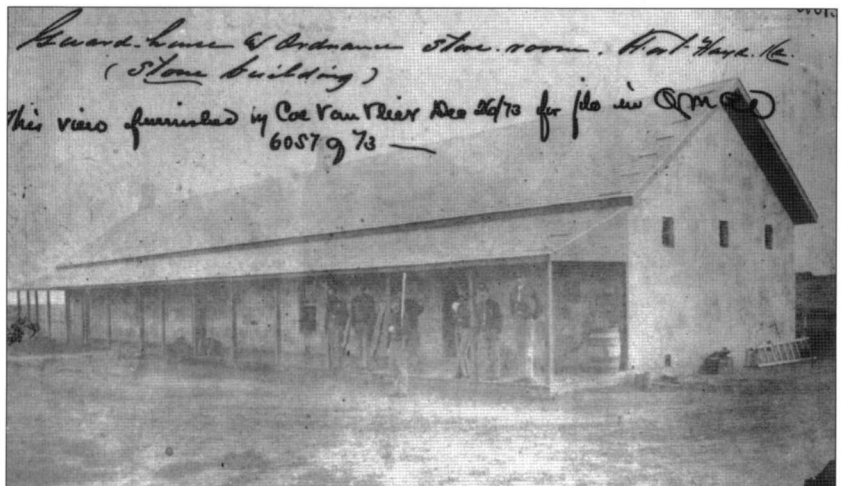 Guard-house & Ordnance Store-room. Fort Hays. Ka.
(Stone building)
This view furnished by Col Van Vliet Dec 26/73 for file in Q M G O
6057 of 73 —